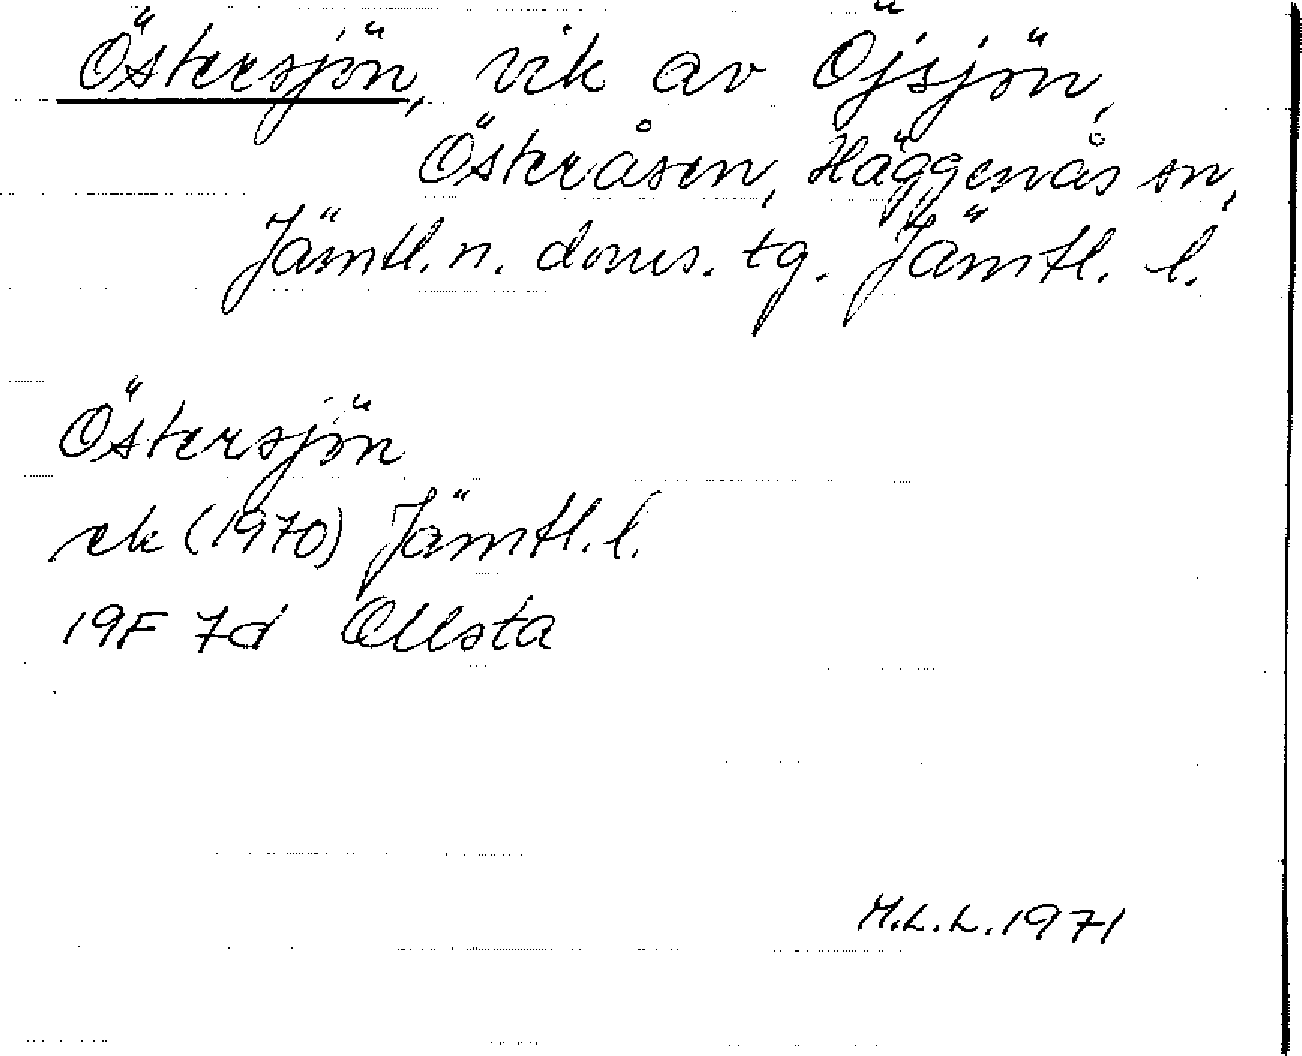 Östersjön, vik av Öjsjön,
Österåsen, Häggenås sn,
Jämtl. n. doms. tg. Jämtl. l.
Östersjön
ek (1970) Jämtl. l.
19F 7d Ollsta
M.L.L. 1971